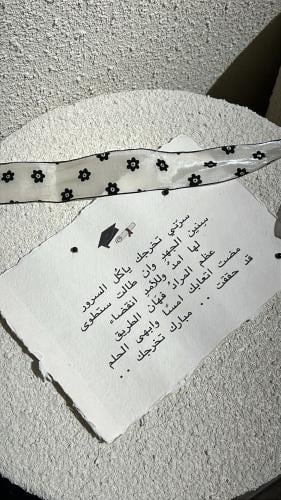 سرّني تخرجك يا كُل السرور
سنين الجهد وان طالت ستطوى
لها امدٌ وللأمدِ انقضاء
عظم المرادُ فهان الطريق
مضت اتعابك امسًا وابهى الحلم
قد حققت ... مبارك تخرجك ..